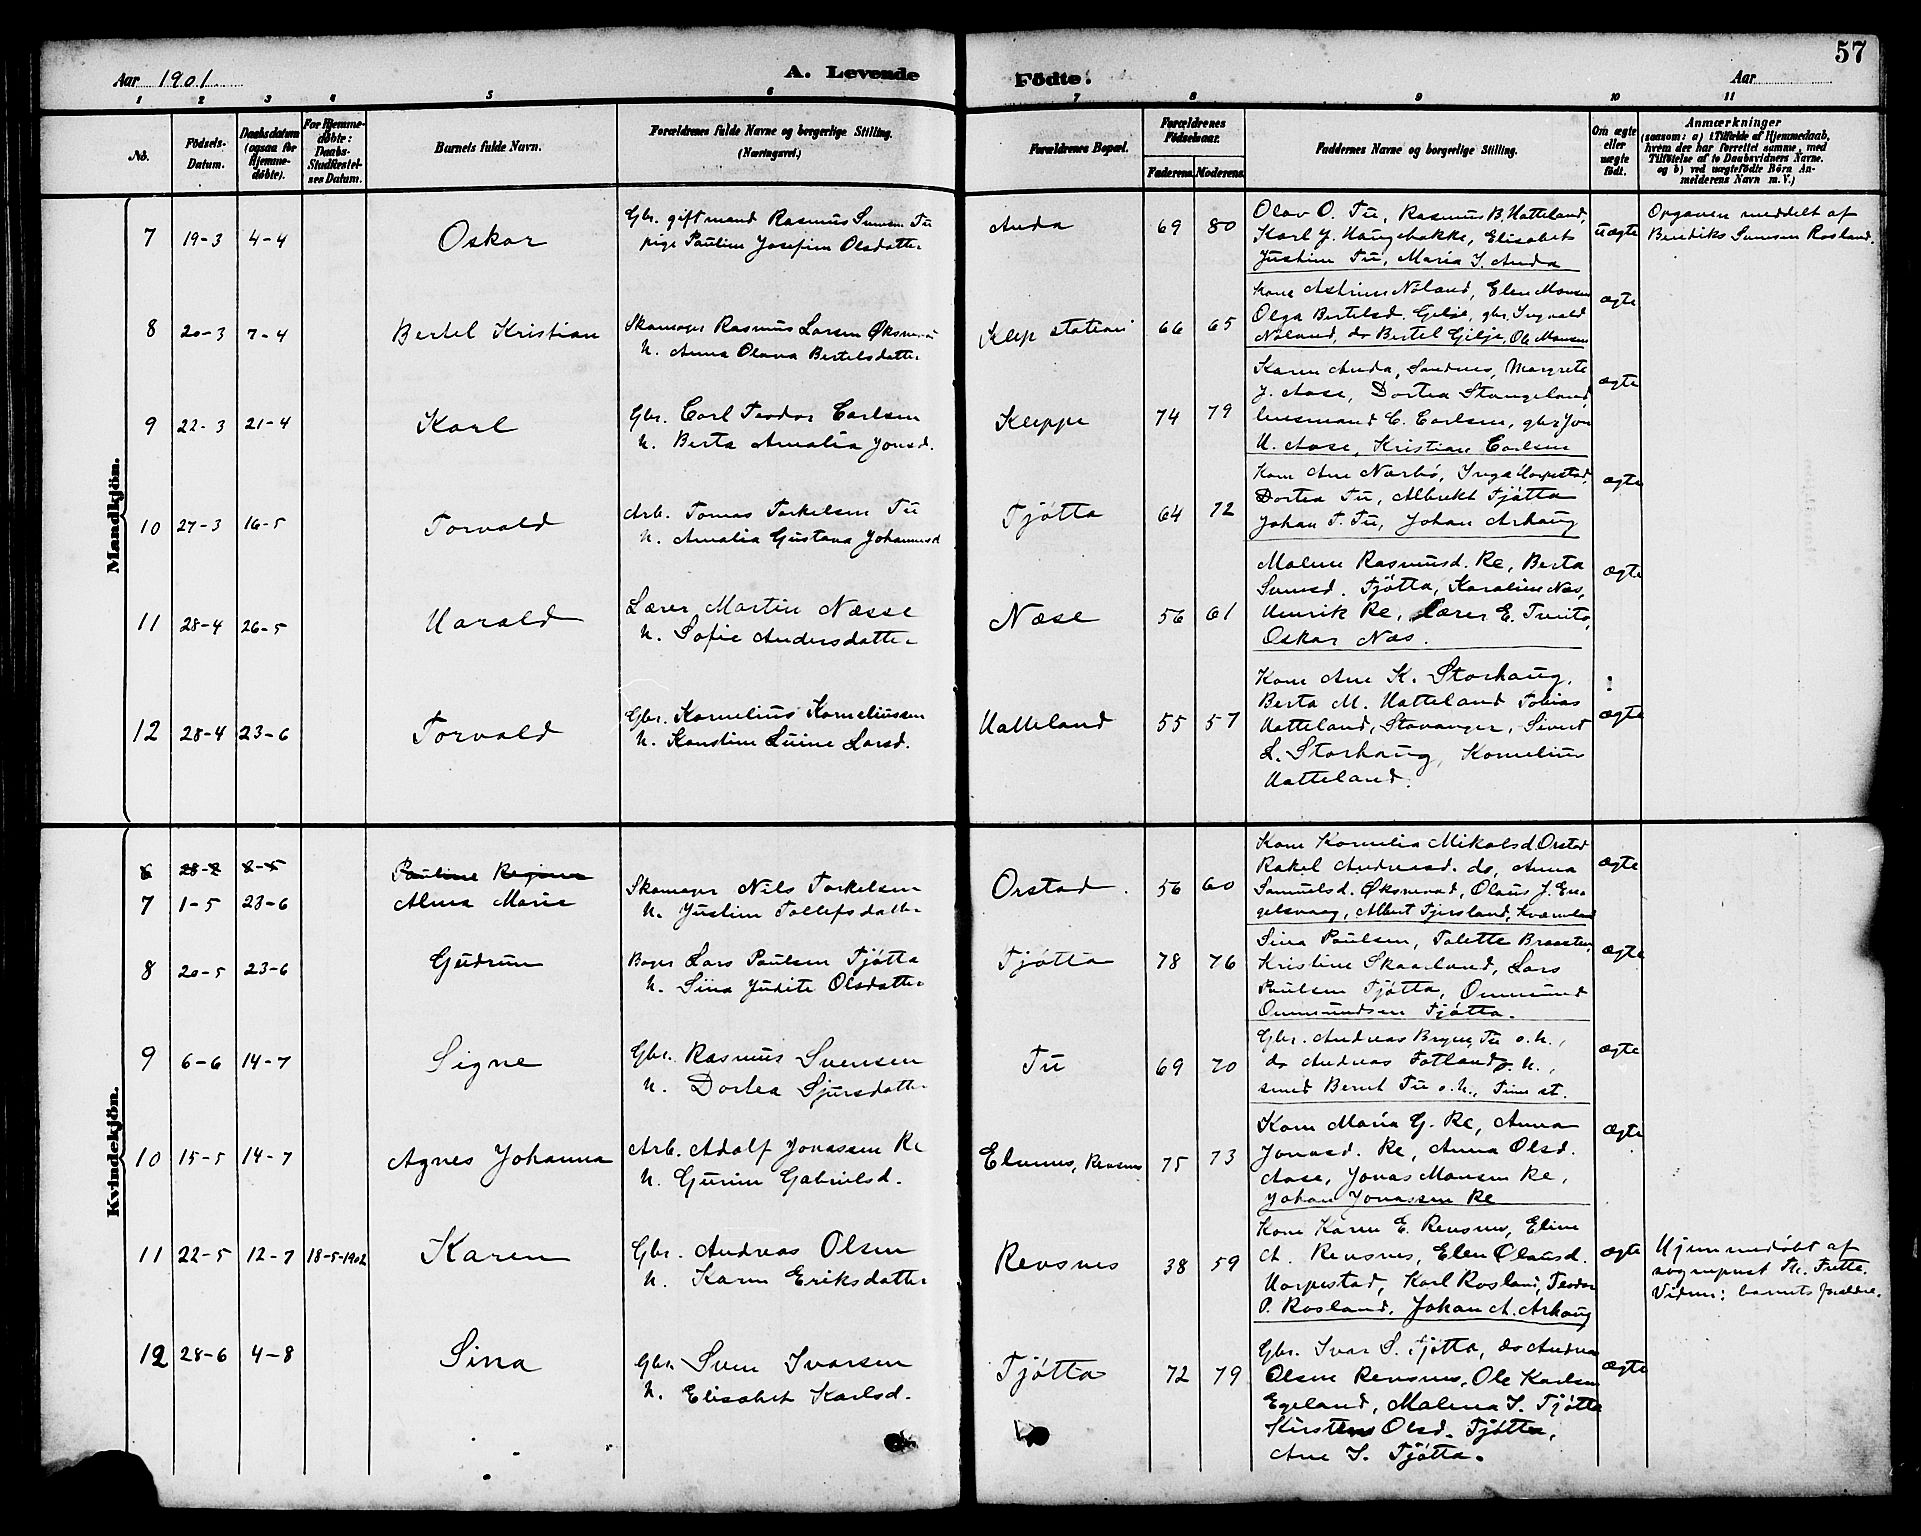 57
Aar 1901
A. Levende
Fødte.
Aar
1 2 3 4 5 6 7 8 9 10 11
No.
Fødsels-Datum.
Daabsdatum (ogsaa for Hjemme-døbte).
For Hjemme-døbte: Daabs-Stadfæstel-ses Datum.
Barnets fulde Navn.
Forældrenes fulde Navne og borgerlige Stilling. (Næringsvei.)
Forældrenes Bopæl.
Forældrenes Fødselsaar.
Faderens. Moderens.
Faddernes Navne og borgerlige Stilling.
Om ægte eller uægte født.
Anmærkninger
(saasom: a) i Tilfælde af Hjemmedaab, hvem der har forrettet samme, med Tilføielse af to Daabsvidners Navne. og b) ved uægtefødte Børn An-melderens Navn m. V.)
Mandkjön.
7 19-3 4-4 Oskar
Gbr. gift mand Rasmus Svensen Tu
pige Pauline Josefine Olsdatter
Anda 69 80
Olav O. Tu, Rasmus B. Hatteland,
Karl J. Haugebakke, Elisabet
Justine Tu, Maria I. Anda
uægte
Opgaven meddelt af
Bendiks Svensen Rosland.
8 20-3 7-4 Bertel Kristian
Skomager Rasmus Larsen Øksnevad
h. Anna Olava Bertelsdatter
Klep station 66 65
Kone Astrine Nöland, Elen Monsen
Olga Bertelsd. Gilje, gbr. Ingvald
Nöland, do Bertel Gilje, Ole Monsen
ægte
9 22-3 21-4 Karl
Gbr. Carl Teodor Carlsen
h. Berta Amalia Jonsd.
Kleppe 74 79
Karen Anda, Sandnes, Margrete
J. Aase, Dortea Stangeland,
lensmand C. Carlsen, gbr Jon
H. Aase, Kristian Carlsen
ægte
10 27-3 16-5 Torvald
Arb. Tomas Torkelsen Tu
h. Amalia Gustava Johannesd
Tjøtta 64 72
Kone Ane Nærbö, Inga Horpestad,
Dortea Tu, Albrekt Tjøtta
Johan T. Tu, Johan Arhaug
ægte
11 28-4 26-5 Harald
Lærer Martin Næsse
h. Sofie Andersdatter
Næse 56 61
Malene Rasmusd. Re, Berta
Svensd. Tjøtta, Karoline Næs,
Henrik Re, Lærer E. Tveito,
Oskar Næs.
ægte
12 28-4 23-6 Torvald
Gbr. Kornelius Korneliussen
h. Konstine Luine Larsd.
Hatteland 55 57
Kone Ane K. Storhaug,
Berta M. Hatteland Tobias
Hatteland, Stavanger, Sivert
L. Storhaug, Kornelius
Hatteland.
ægte
Kvindekjön.
6 28-2 8-5 Pauline Regine
7 1-5 23-6 Alma Marie
Skomager Nils Torkelsen
h. Justine Tollefsdatter
Orstad. 56 60
Kone Kornelia Mikalsd. Orstad
Rakel Andreasd. do, Anna
Samuelsd. Øksnevad, Olaus J. En-
gelsvaag, Albert Tjersland, Kværnland
ægte
8 20-5 23-6 Gudrun
Bager Lars Paulsen Tjøtta
h. Sina Judite Olsdatter
Tjøtta 78 76
Sina Paulsen, Tolette Braasten,
Kristine Skaarland, Lars
Paulsen Tjøtta, Ommund
Ommundsen Tjøtta.
ægte
9 6-6 14-7 Signe
Gbr. Rasmus Svensen
h. Dortea Sjursdatter
Tu 69 70
Gbr. Andreas Bryne, Tu o. h.,
do Andreas Fotland o. h.,
smed Bernt Tu o. h., Time st.
ægte
10 15-5 14-7 Agnes Johanna
Arb. Adolf Jonassen Re
h. Gurine Gabrielsd.
Elvenes, Revsnes 75 73
Kone Maria G. Re, Anna
Jonasd. Re, Anna Olsd.
Aase, Jonas Monsen Re,
Johan Jonassen Re
ægte
11 22-5 12-7 18-5-1902 Karen
Gbr. Andreas Olsen
h. Karen Eriksdatter
Revsnes 38 59
Kone Karen E. Revsnes, Eline
A. Revsnes, Elen Olausd.
Horpestad, Karl Rosland, Teodor
P. Rosland, Johan A. Arhaug
ægte
Hjemmedøbt af
sogneprest Th. Frette.
Vidner: barnets forældre.
12 28-6 4-8 Sina
Gbr Sven Ivarsen
h. Elisabet Karlsd.
Tjøtta 72 79
Gbr. Ivar S. Tjøtta, do Andreas
Olsen Revsnes, Ole Karlsen
Egeland, Malena I. Tjøtta
Kirstens Olsd. Tjøtta,
Ane I. Tjøtta.
ægte